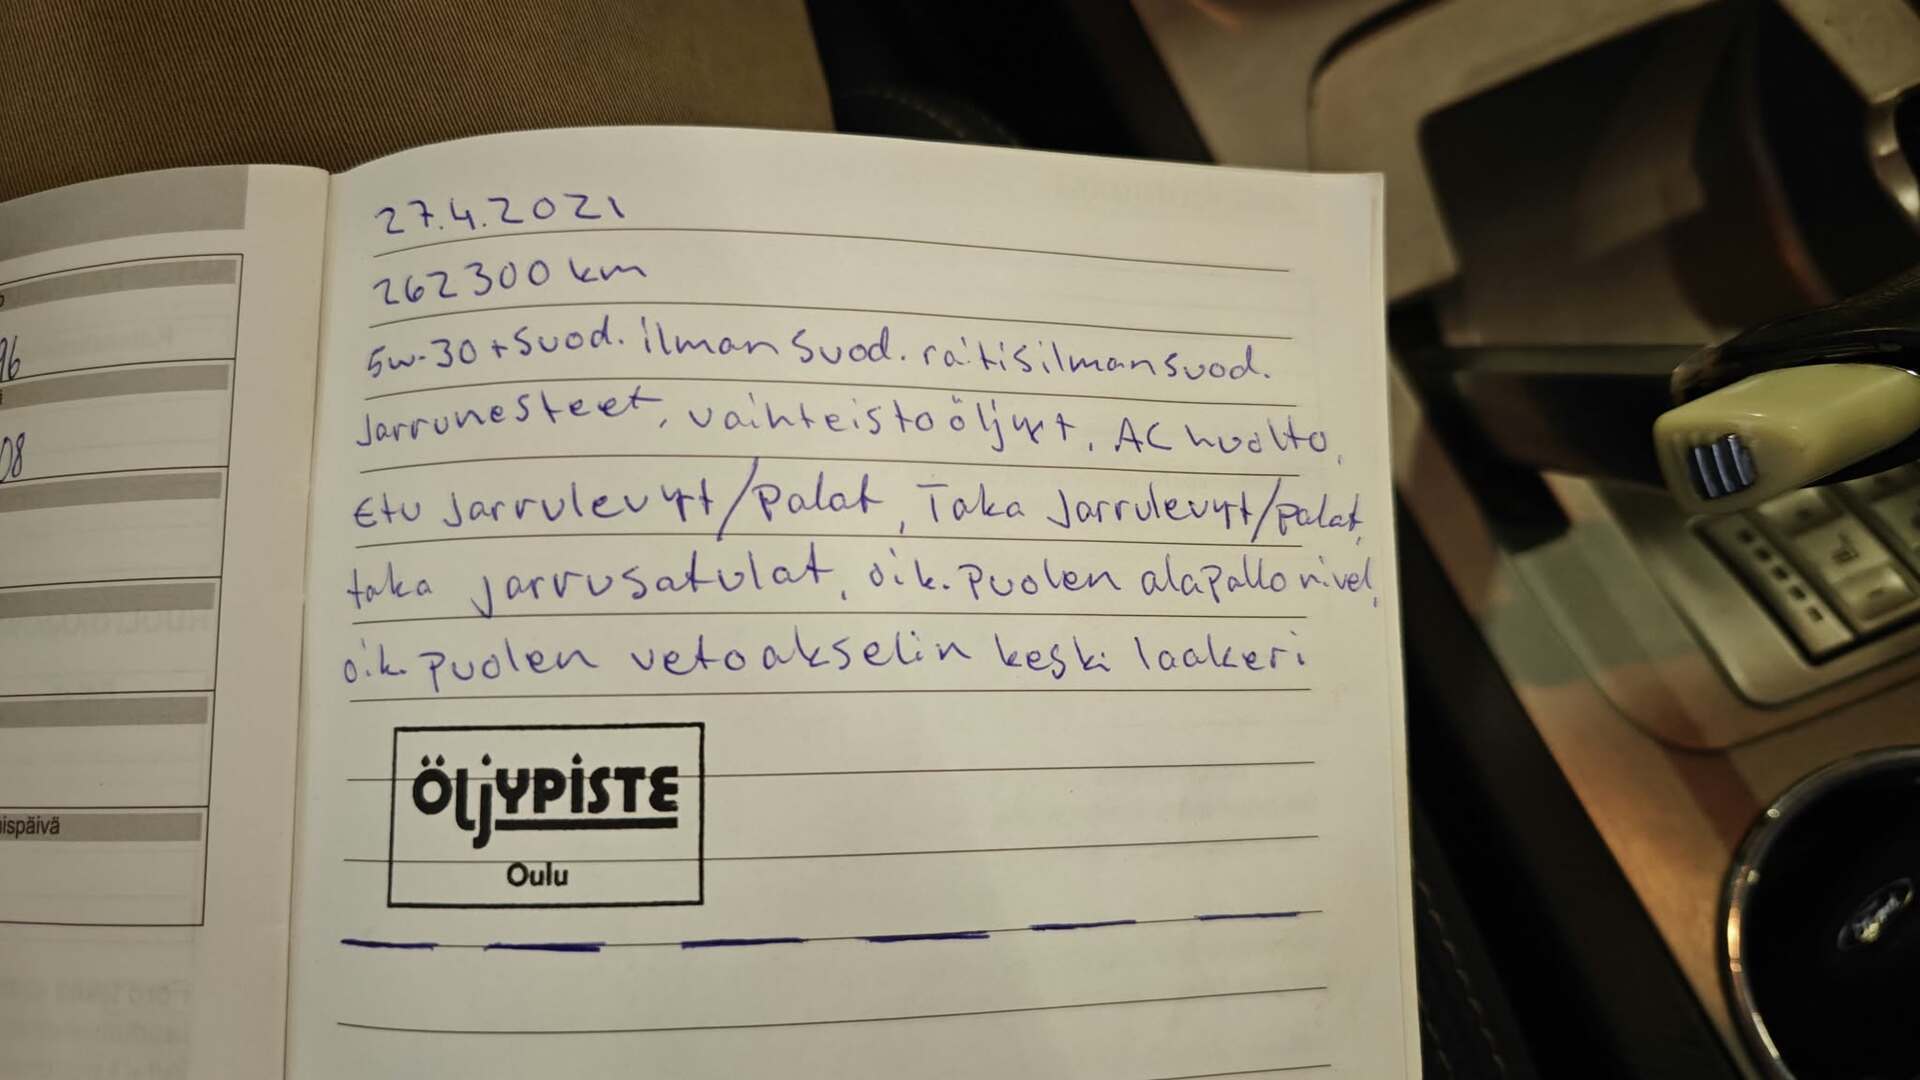 96
08
ispäivä
27.4.2021
262300 km
5w-30 + suod. ilman suod. raitisilmansuod.
Jarrunesteet, vaihteistoöljyt, AC huolto,
Etu Jarrulevyt/palat, Taka Jarrulevyt/palat,
taka jarrusatulat, oik. puolen alapallo nivel,
oik. puolen vetoakselin keski laakeri
ÖLJYPISTE
Oulu
Ford